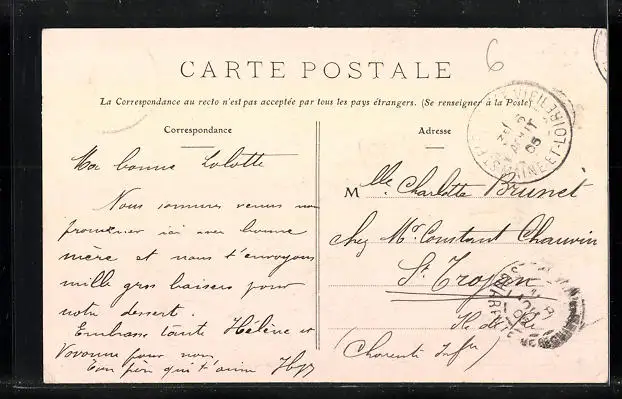 6
CARTE POSTALE
La Correspondance au recto n'est pas acceptée par tous les pays étrangers. (Se renseigner à la Poste)
Correspondance
Adresse
Ma bonne Lolotte
Nous sommes venus nous
promener ici avec bonne
mère et nous t'envoyons
mille gros baisers pour
notre dessert.
Embrasse tante Hélène et
Vovonne pour nous
Ton père qui t'aime
Mlle Charlotte Brunet
chez Mr Constant Chauvin
St. Trojan
Ile d'
(Charente Infre)
MAINE-ET-LOIRE
05